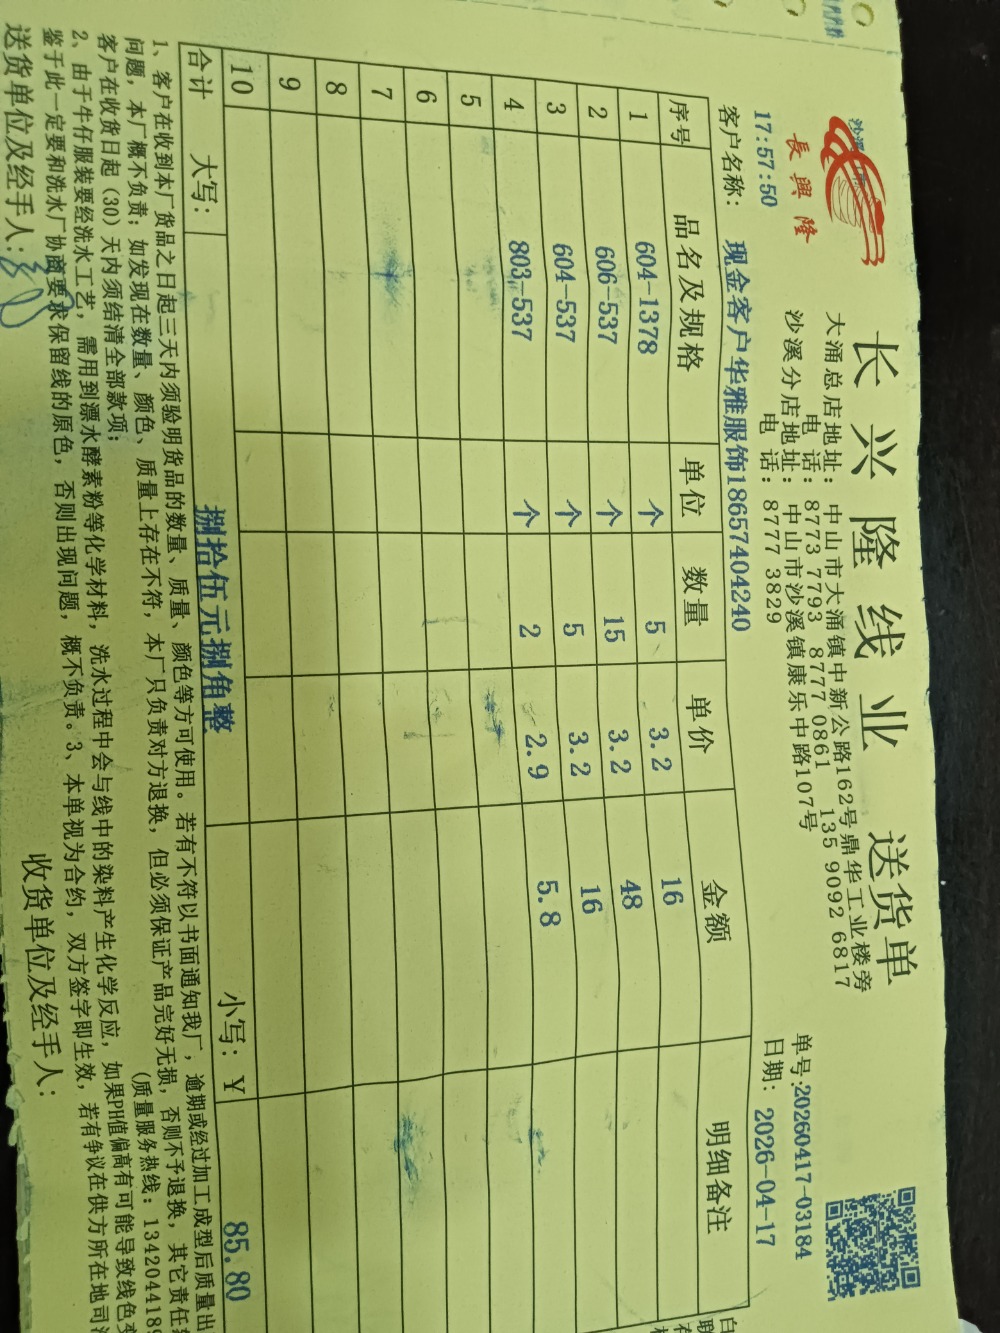 长兴隆线业 送货单
長興隆
大涌总店地址: 中山市大涌镇中新公路162号鼎华工业楼旁
电话: 8773 7793 8777 0861 135 9092 6817
沙溪分店地址: 中山市沙溪镇康乐中路107号
电话: 8777 3829
单号:20260417-03184
17:57:50
日期: 2026-04-17
客户名称: 现金客户华雅服饰18657404240
序号 品名及规格 单位 数量 单价 金额 明细备注
1 604-1378 个 5 3.2 16
2 606-537 个 15 3.2 48
3 604-537 个 5 3.2 16
4 803-537 个 2 2.9 5.8
5
6
7
8
9
10
合计 大写: 捌拾伍元捌角整 小写: Y 85.80
1、客户在收到本厂货品之日起三天内须验明货品的数量、质量、颜色等方可使用。若有不符以书面通知我厂,逾期或经过加工成型后质量出
问题,本厂概不负责;如发现在数量、颜色、质量上存在不符,本厂只负责对方退换,但必须保证产品完好无损,否则不予退换,其它责任
客户在收货日起(30)天内须结清全部款项; (质量服务热线:1342044189
2、由于牛仔服装要经洗水工艺,需用到漂水酵素粉等化学材料,洗水过程中会与线中的染料产生化学反应,如果PH值偏高有可能导致线色变
鉴于此一定要和洗水厂协商要求保留线的原色,否则出现问题,概不负责。3、本单视为合约,双方签字即生效,若有争议在供方所在地司
送货单位及经手人: 收货单位及经手人: